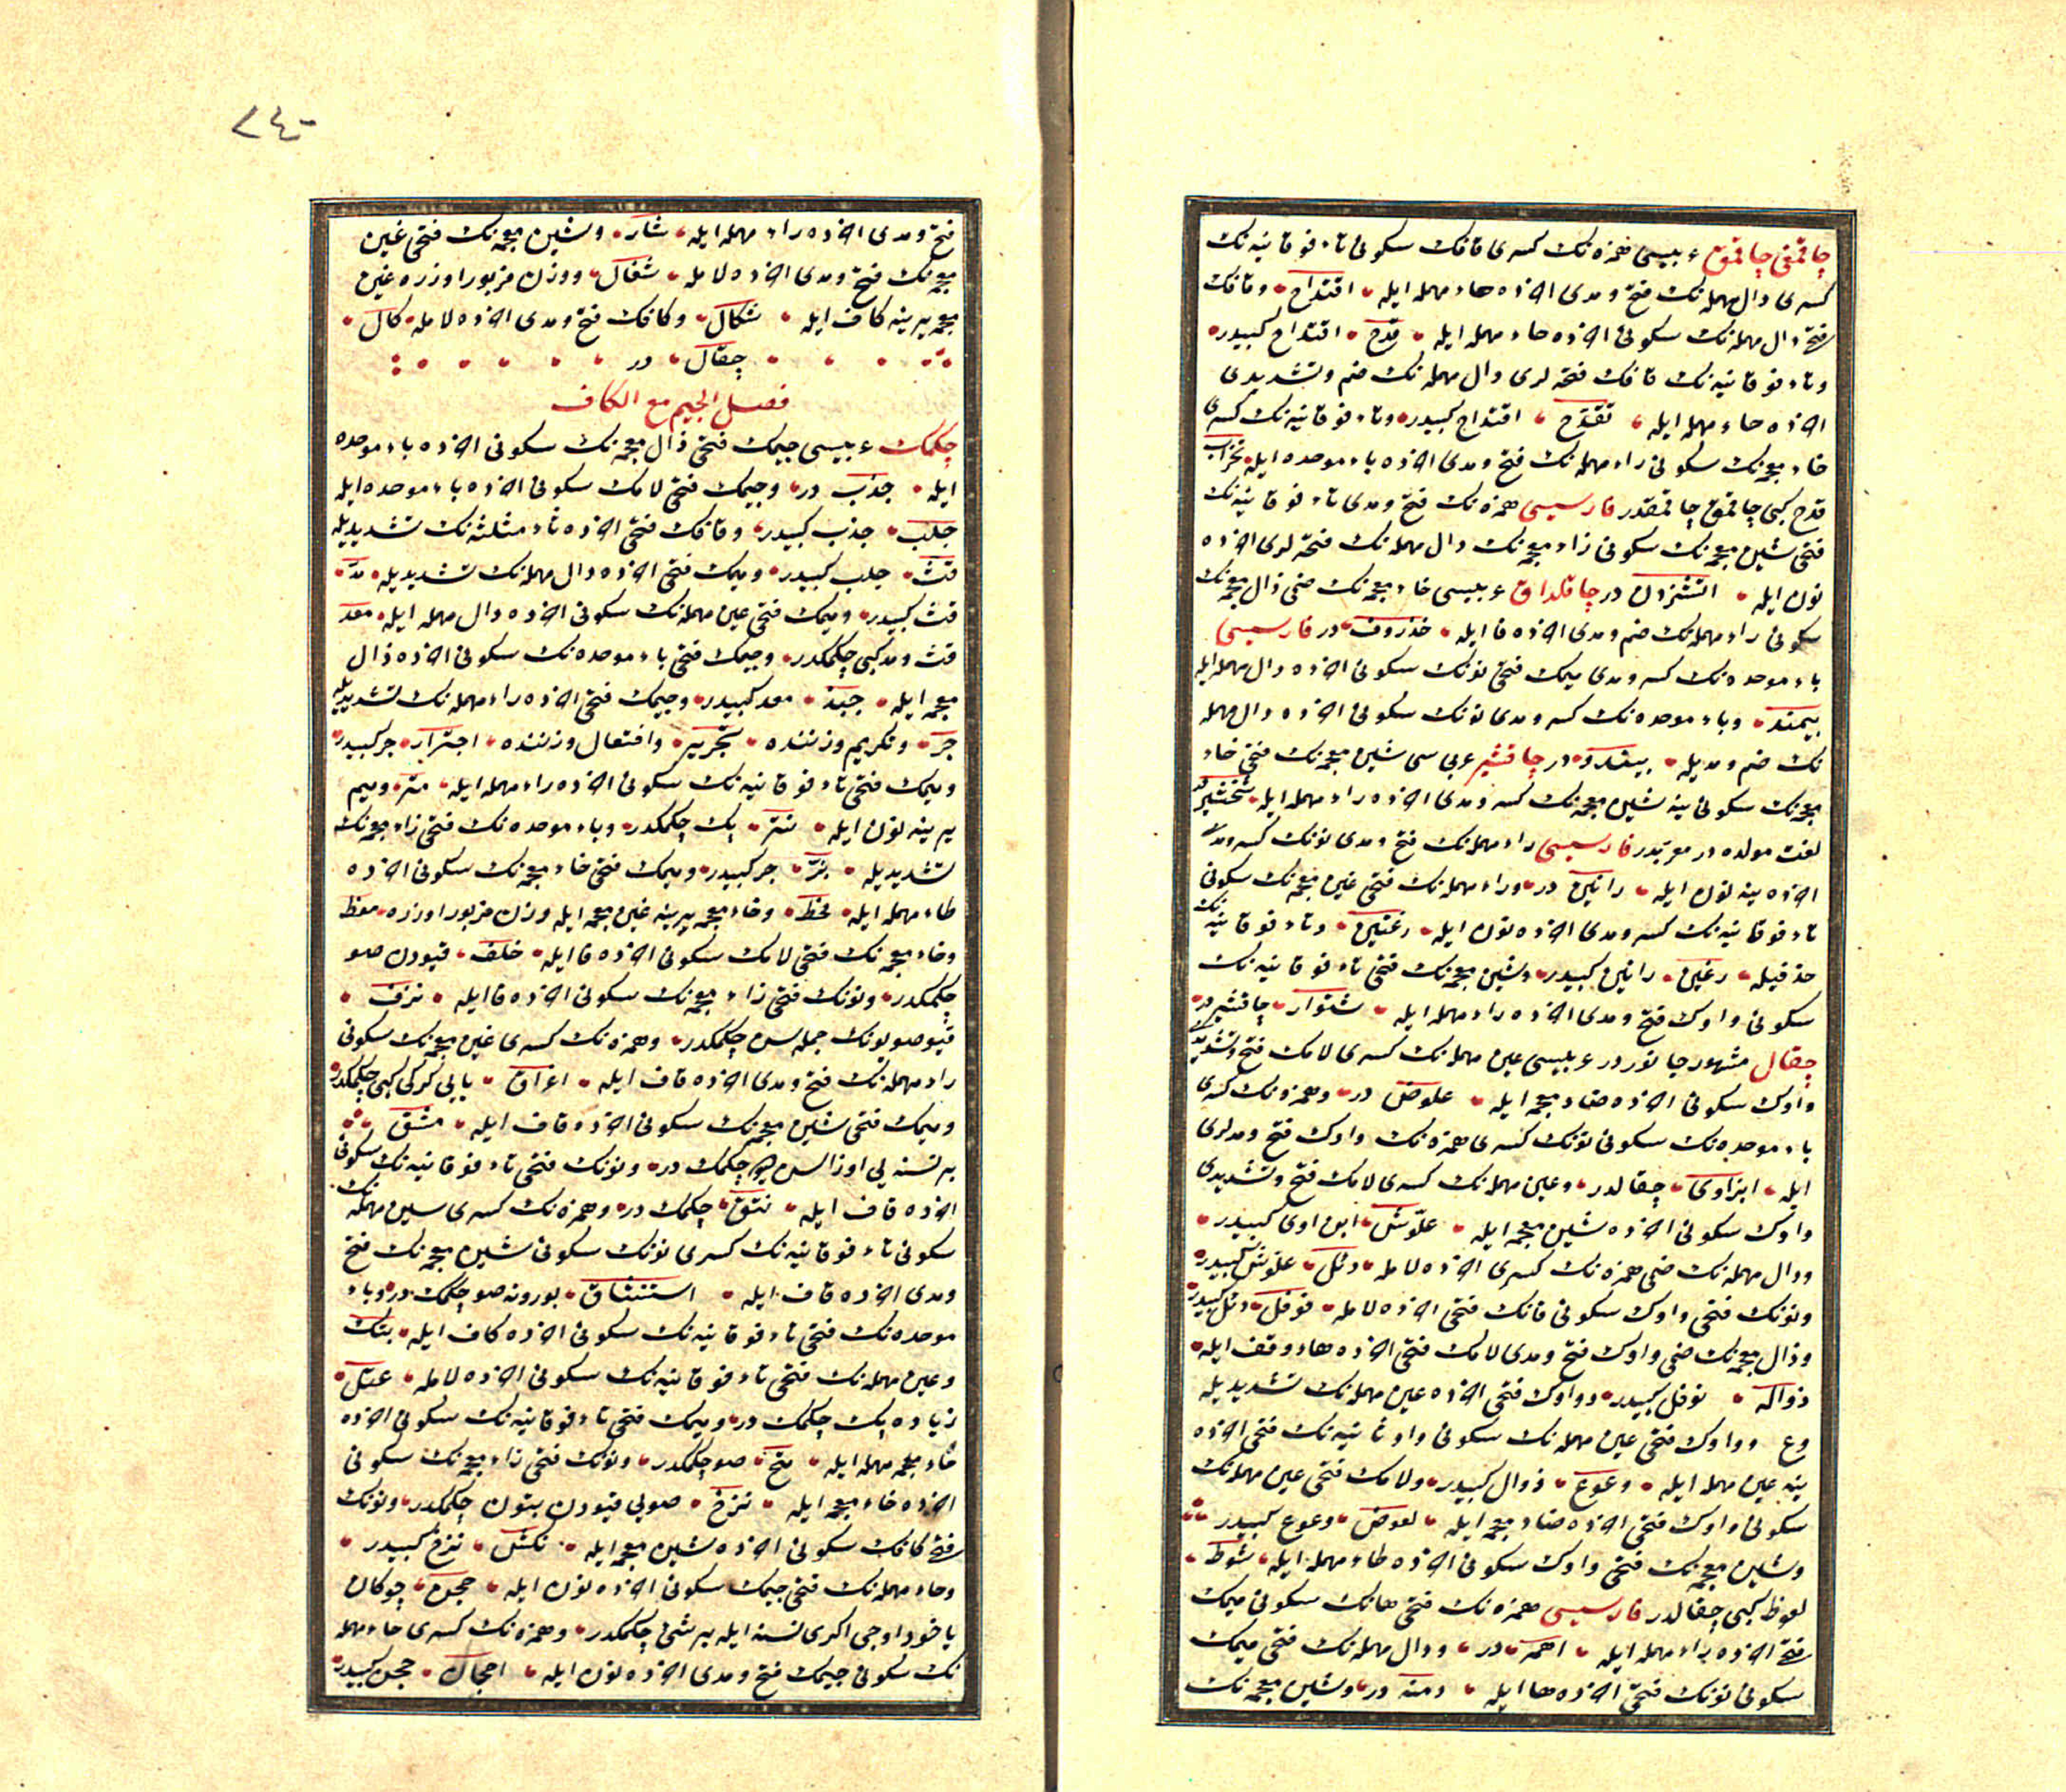 چاقمقی چاقمق عربیسی همزه‌نك كسری قافك سكونی تاء فوقانیه‌نك
كسری دال مهمله‌نك فتح و مدی اخرده حاء مهمله ایله اقتداح و قافك
فتحی دال مهمله‌نك سكونی اخرده حاء مهمله ایله قدح اقتداح كبیدر
و تاء فوقانیه‌نك قافك فتحه لری دال مهمله‌نك ضم و تشدیدی
اخرده حاء مهمله ایله تقدح اقتداح كبیدر و تاء فوقانیه‌نك كسری
خاء معجمه‌نك سكونی راء مهمله‌نك فتح و مدی اخرده باء موحده ایله تخراب
قدح كبی چاقمق چاقمقدر فارسیسی همزه‌نك فتح و مدی تاء فوقانیه‌نك
فتحی شین معجمه‌نك سكونی زاء معجمه‌نك دال مهمله‌نك فتحه لری اخرده
نون ایله آتشزدن در چاقلداق عربیسی خاء معجمه‌نك ضمی ذال معجمه‌نك
سكونی راء مهمله‌نك ضم و مدی اخرده فا ایله خذروف در فارسیسی
باء موحده‌نك كسر و مدی میمك فتحی نونك سكونی اخرده دال مهمله ایله
بیمند و باء موحده‌نك كسر و مدی نونك سكونی اخرده دال مهمله
نك ضم و مدیله در چاقشیر عربی سی شین معجمه‌نك فتحی خاء
معجمه‌نك سكونی ینه شین معجمه‌نك كسر و مدی اخرده راء مهمله ایله شخشیر در
لغت مولده در معربدر فارسیسی راء مهمله‌نك فتح و مدی نونك كسر و مدی
اخرده ینه نون ایله رانین در و راء مهمله‌نك فتحی غین معجمه‌نك سكونی
تاء فوقانیه‌نك كسر و مدی اخرده نون ایله رغتین و تاء فوقانیه نك
حذفیله رغین رانین كبیدر و شین معجمه‌نك فتحی تاء فوقانیه‌نك
سكونی واوك فتح و مدی اخرده راء مهمله ایله شتوار چاقشیر در
چقال مشهور جانوردر عربیسی عین مهمله‌نك كسری لامك فتح و تشدیدی
واوك سكونی اخرده ضاد معجمه ایله علوض در و همزه‌نك كسری
باء موحده‌نك سكونی نونك كسری همزه‌نك واوك فتح و مدلری
ایله ابن اوی چقالدر و عین مهمله‌نك كسری لامك فتح و تشدیدی
واوك سكونی اخرده شین معجمه ایله علوش ابن اوی كبیدر
و دال مهمله‌نك ضمی همزه‌نك كسری اخرده لام ایله دئل علوش كبیدر
و نونك فتحی واوك سكونی فانك فتحی اخرده لام ایله نوفل دئل كبیدر
و ذال معجمه‌نك ضمی واوك فتح و مدی لامك فتحی اخرده هاء وقف ایله
ذواله نوفل كبیدر و واوك فتحی اخرده عین مهمله‌نك تشدیدیله
وع و واوك فتحی عین مهمله‌نك سكونی واو ثانیه‌نك فتحی اخرده
ینه عین مهمله ایله وعوع ذوال كبیدر و لامك فتحی عین مهمله‌نك
سكونی واوك فتحی اخرده ضاد معجمه ایله لعوض وعوع كبیدر
و شین معجمه‌نك فتحی واوك سكونی اخرده طاء مهمله ایله شوط
لعوظ كبی چقالدر فارسیسی همزه‌نك فتحی هانك سكونی میمك
فتحی اخرده راء مهمله ایله اهمر در و دال مهمله‌نك فتحی میمك
سكونی نونك فتحی اخرده ها ایله دمنه در و شین معجمه‌نك
٢٤٠
فتح و مدی اخرده راء مهمله ایله شار و شین معجمه‌نك فتحی غین
معجمه‌نك فتح و مدی اخرده لام ایله شغال و وزن مزبور اوزره غین
معجمه یرینه كاف ایله شكال و كافك فتح و مدی اخرده لام ایله كال
چقال در
فصل الجیم مع الكاف
چكمك عربیسی جیمك فتحی ذال معجمه‌نك سكونی اخرده باء موحده
ایله جذب در و جیمك فتحی لامك سكونی اخرده باء موحده ایله
جلب جذب كبیدر و قافك فتحی اخرده ثاء مثلثه‌نك تشدیدیله
قث جلب كبیدر و میمك فتحی اخرده دال مهمله‌نك تشدیدیله مد
قث كبیدر و میمك فتحی عین مهمله‌نك سكونی اخرده دال مهمله ایله معد
قث و مد كبی چكمكدر و جیمك فتحی باء موحده‌نك سكونی اخرده ذال
معجمه ایله جبذ معد كبیدر و جیمك فتحی اخرده راء مهمله‌نك تشدیدیله
جر و تكریم وزننده تجریر و افتعال وزننده اجترار جر كبیدر
و میمك فتحی تاء فوقانیه‌نك سكونی اخرده راء مهمله ایله متر و میم
یرینه نون ایله نتر پك چكمكدر و باء موحده‌نك فتحی زاء معجمه‌نك
تشدیدیله بز جر كبیدر و میمك فتحی خاء معجمه‌نك سكونی اخرده
طاء مهمله ایله مخط و خاء معجمه یرینه غین معجمه ایله وزن مزبور اوزره مغط
و خاء معجمه‌نك فتحی لامك سكونی اخرده فا ایله خلف قیودن صو
چكمكدر و نونك فتحی زاء معجمه‌نك سكونی اخرده فا ایله نزف
قیو صویونك جمله سن چكمكدر و همزه‌نك كسری غین معجمه‌نك سكونی
راء مهمله‌نك فتح و مدی اخرده قاف ایله اغراق یایی كركی كبی چكمكدر
و میمك فتحی شین معجمه‌نك سكونی اخرده قاف ایله مشق
بر نسنه یی اوزالسن چكمك در و نونك فتحی تاء فوقانیه‌نك سكونی
اخرده قاف ایله نتق چكمك در و همزه‌نك كسری سین مهمله نك
سكونی تاء فوقانیه‌نك كسری نونك سكونی شین معجمه‌نك فتح
و مدی اخرده قاف ایله استنشاق بورونه صو چكمك در و باء
موحده‌نك فتحی تاء فوقانیه‌نك سكونی اخرده كاف ایله بتك
و عین مهمله‌نك فتحی تاء فوقانیه‌نك سكونی اخرده لام ایله عتل
زیاده پك چكمك در و میمك فتحی تاء فوقانیه‌نك سكونی اخرده
حاء مهمله ایله متح صو چكمكدر و نونك فتحی زاء معجمه‌نك سكونی
اخرده خاء معجمه ایله نزخ صویی قیودن بتون چكمكدر و نونك
فتحی كافك سكونی اخرده شین معجمه ایله نكش نزخ كبیدر
و حاء مهمله‌نك فتحی جیمك سكونی اخرده نون ایله حجن چوكان
یاخود اوجی اكری نسنه ایله بر شیئ چكمكدر و همزه‌نك كسری حاء مهمله
نك سكونی جیمك فتح و مدی اخرده نون ایله احجان حجن كبیدر